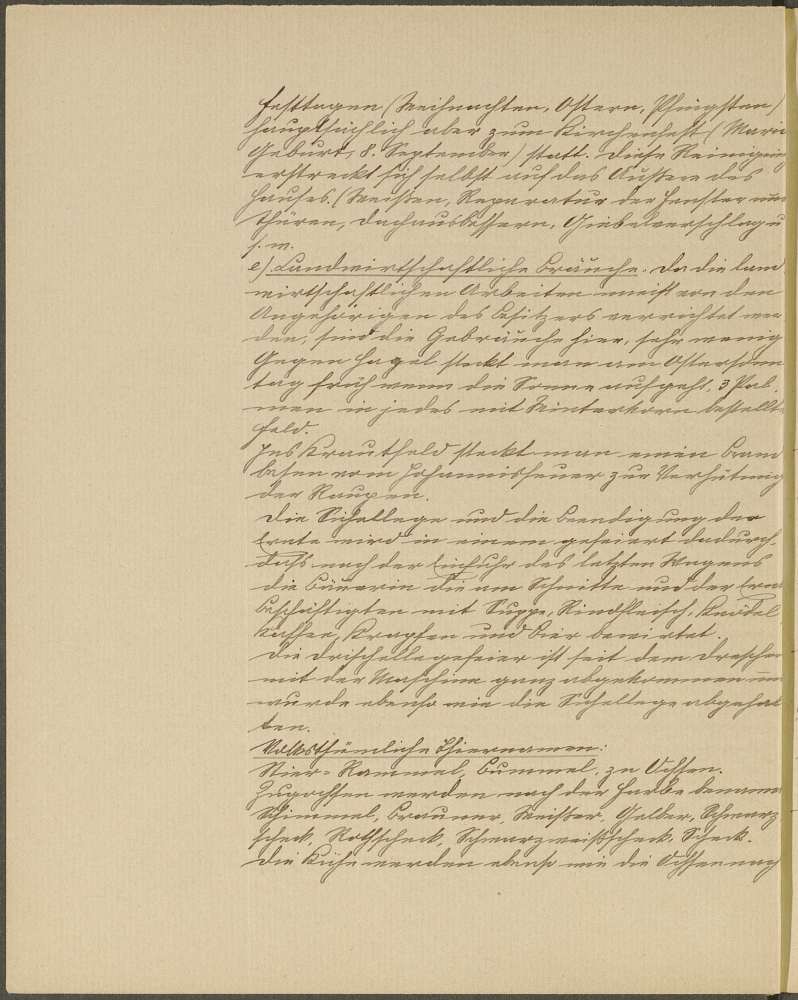 Festtagen (Weihnachten, Ostern, Pfingsten)
hauptsächlich aber zum Kirchenfest (Mariä
Geburt, 8. September) statt. Diese Reinigung
erstreckt sich selbst auf das Äußere des
Hauses. (Weißen, Reparatur der Fenster und
Thüren, Dachausbessern, Giebelverschlag u
s. w.
e) Landwirtschaftliche Bräuche. Da die land
wirtschaftlichen Arbeiten meist von den
Angehörigen des Besitzers verrichtet wer
den, sind die Gebräuche hier, sehr wenig
Gegen Hagel steckt man am Ostersonn
tag früh wenn die Sonne aufgeht, 3 Pal
men in jedes mit Winterkorn bestellte
Feld.
Ins Krautfeld steckt man einen Brand
besen vom Johannisfeuer zur Verhütung
der Raupen.
Die Sichellege und die Beendigung der
Ernte wird in einem gefeiert dadurch,
dass nach der Einfuhr des letzten Wagens
die Bäuerin die am Schnitte und der Ernte
Beschäftigten mit Suppe, Rindfleisch, Knödel
Kaffee, Krapfen und Bier bewirtet.
Die Drischellegefeier ist seit dem Dreschen
mit der Maschine ganz abgekommen und
wurde ebenso wie die Sichellege abgehal
ten.
Volksthümliche Thiernamen:
Stier = Rammel, Bummel, zu Ochsen.
Zugochsen werden nach der Farbe benannt
Schimmel, Brauner, Weißer, Gelber, Schwarz
scheck, Rothscheck, Schwarzweißscheck, Scheck.
Die Kühe werden ebenso wie die Ochsen nach